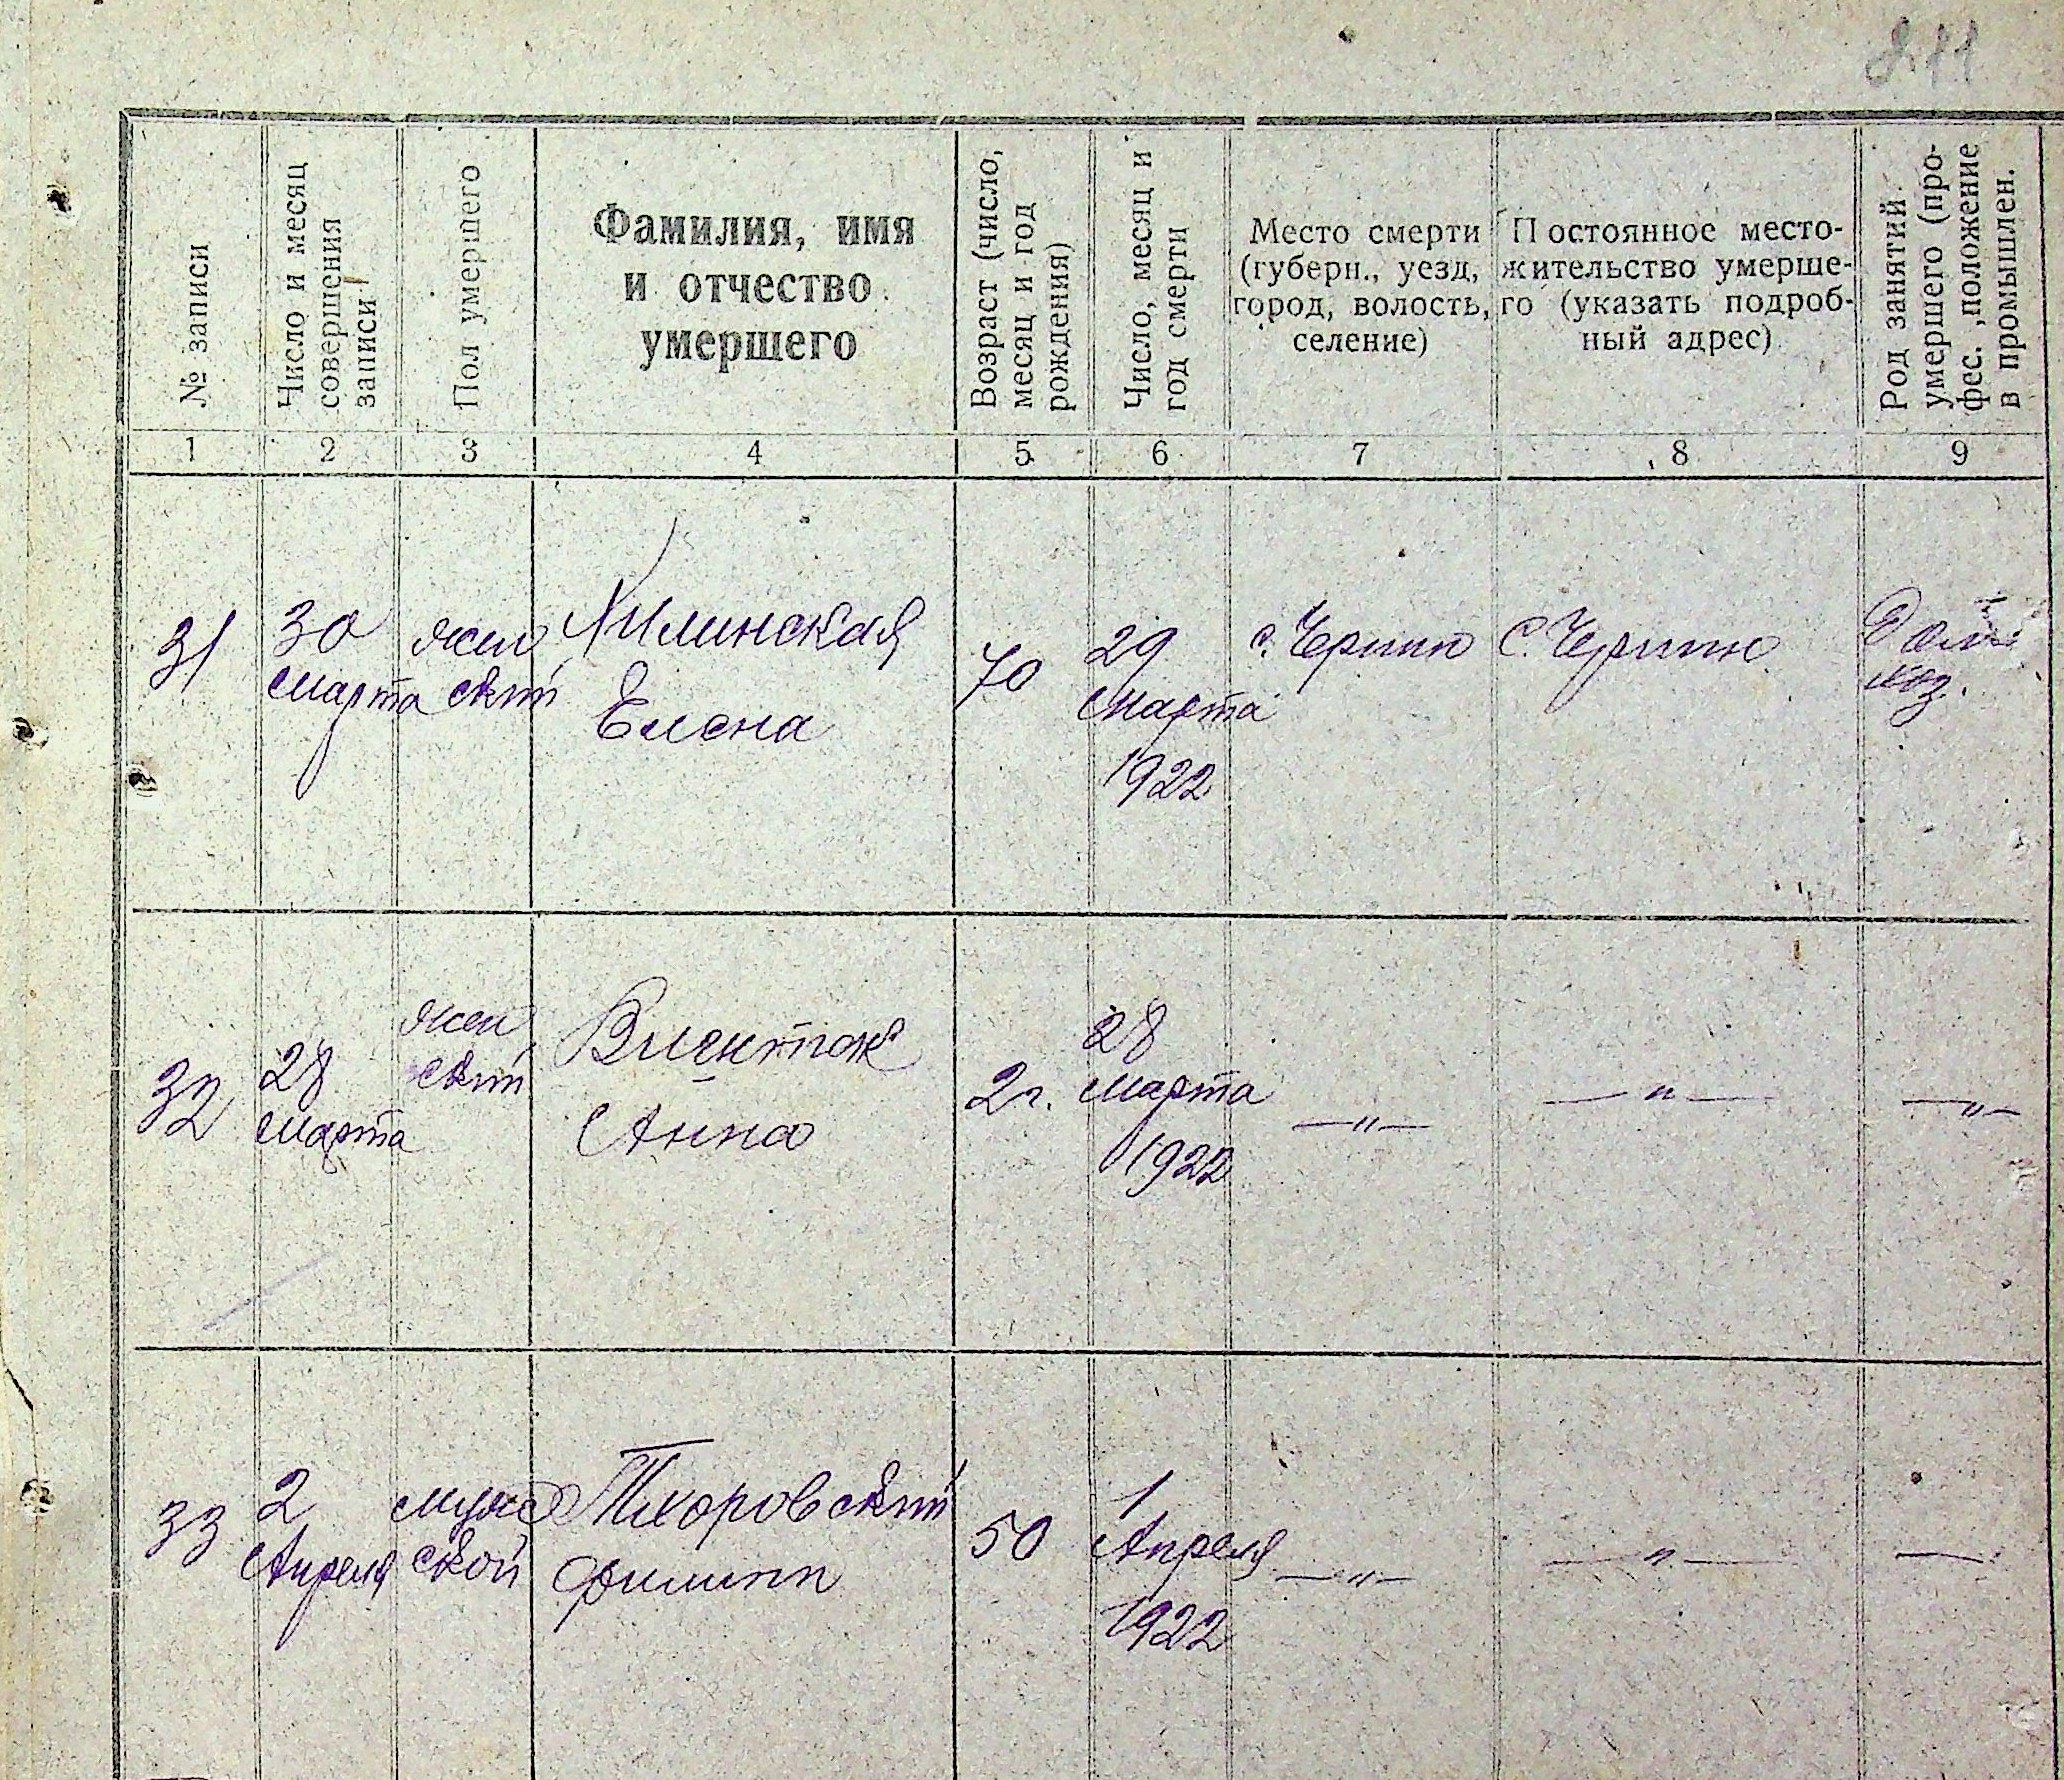 211
№ записи
Число и месяц
совершения
записи
Пол умершего
Фамилия, имя
и отчество
умершего
Возраст (число,
месяц и год
рождения)
Число, месяц и
год смерти
Место смерти
(губерн., уезд,
город, волость,
селение)
Постоянное место-
жительство умерше-
го (указать подроб-
ный адрес)
Род занятий
умершего (про-
фес., положение
в промышлен.
1 2 3 4 5 6 7 8 9
31
30
марта
жен
ский
Хилинская
Елена
70
29
марта
1922
с.
С.
Дом
хоз.
32
28
марта
жен
ский
Анна
2 г.
28
марта
1922
— „ —
— „ —
— „ —
33
2
Апреля
мужс
ской
Тхоровский
Филипп
50
1
Апреля
1922
— „ —
— „ —
—